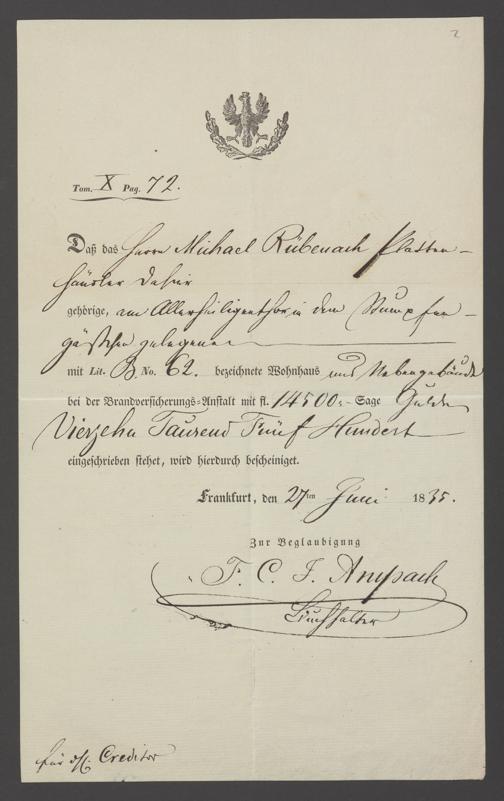 2
Tom. X Pag. 72.
Daß das Herrn Michael Rübenach
dahier
gehörige, am Allerheiligenthor, in dem Stumpfen-
gäßchen gelegene
mit Lit. B. No. 62. bezeichnete Wohnhaus und Nebengebäude
bei der Brandversicherungs-Anstalt mit fl. 14500,- Sage Gulden
Vierzehn Tausend Fünf Hundert
eingeschrieben stehet, wird hierdurch bescheiniget.
Frankfurt, den 27ten Juni 1835.
Zur Beglaubigung
F. C. J. Anspach
Buchhalter
für d. Creditor